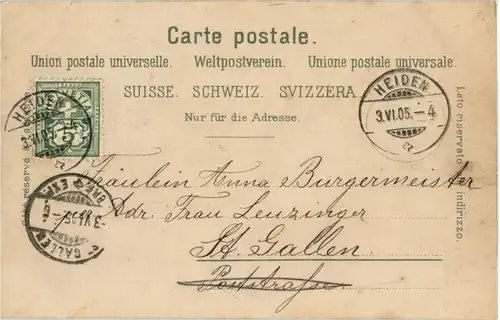 Carte postale.
Union postale universelle. Weltpostverein. Unione postale universale.
SUISSE. SCHWEIZ. SVIZZERA.
Nur für die Adresse.
HEIDEN
3.VI.05.–4
HEIDEN
5
ST. GALLEN
Lato riservato indirizzo.
Fräulein Anna Burgermeister
Adr. Frau Leuzinger
St. Gallen
Poststrasse.